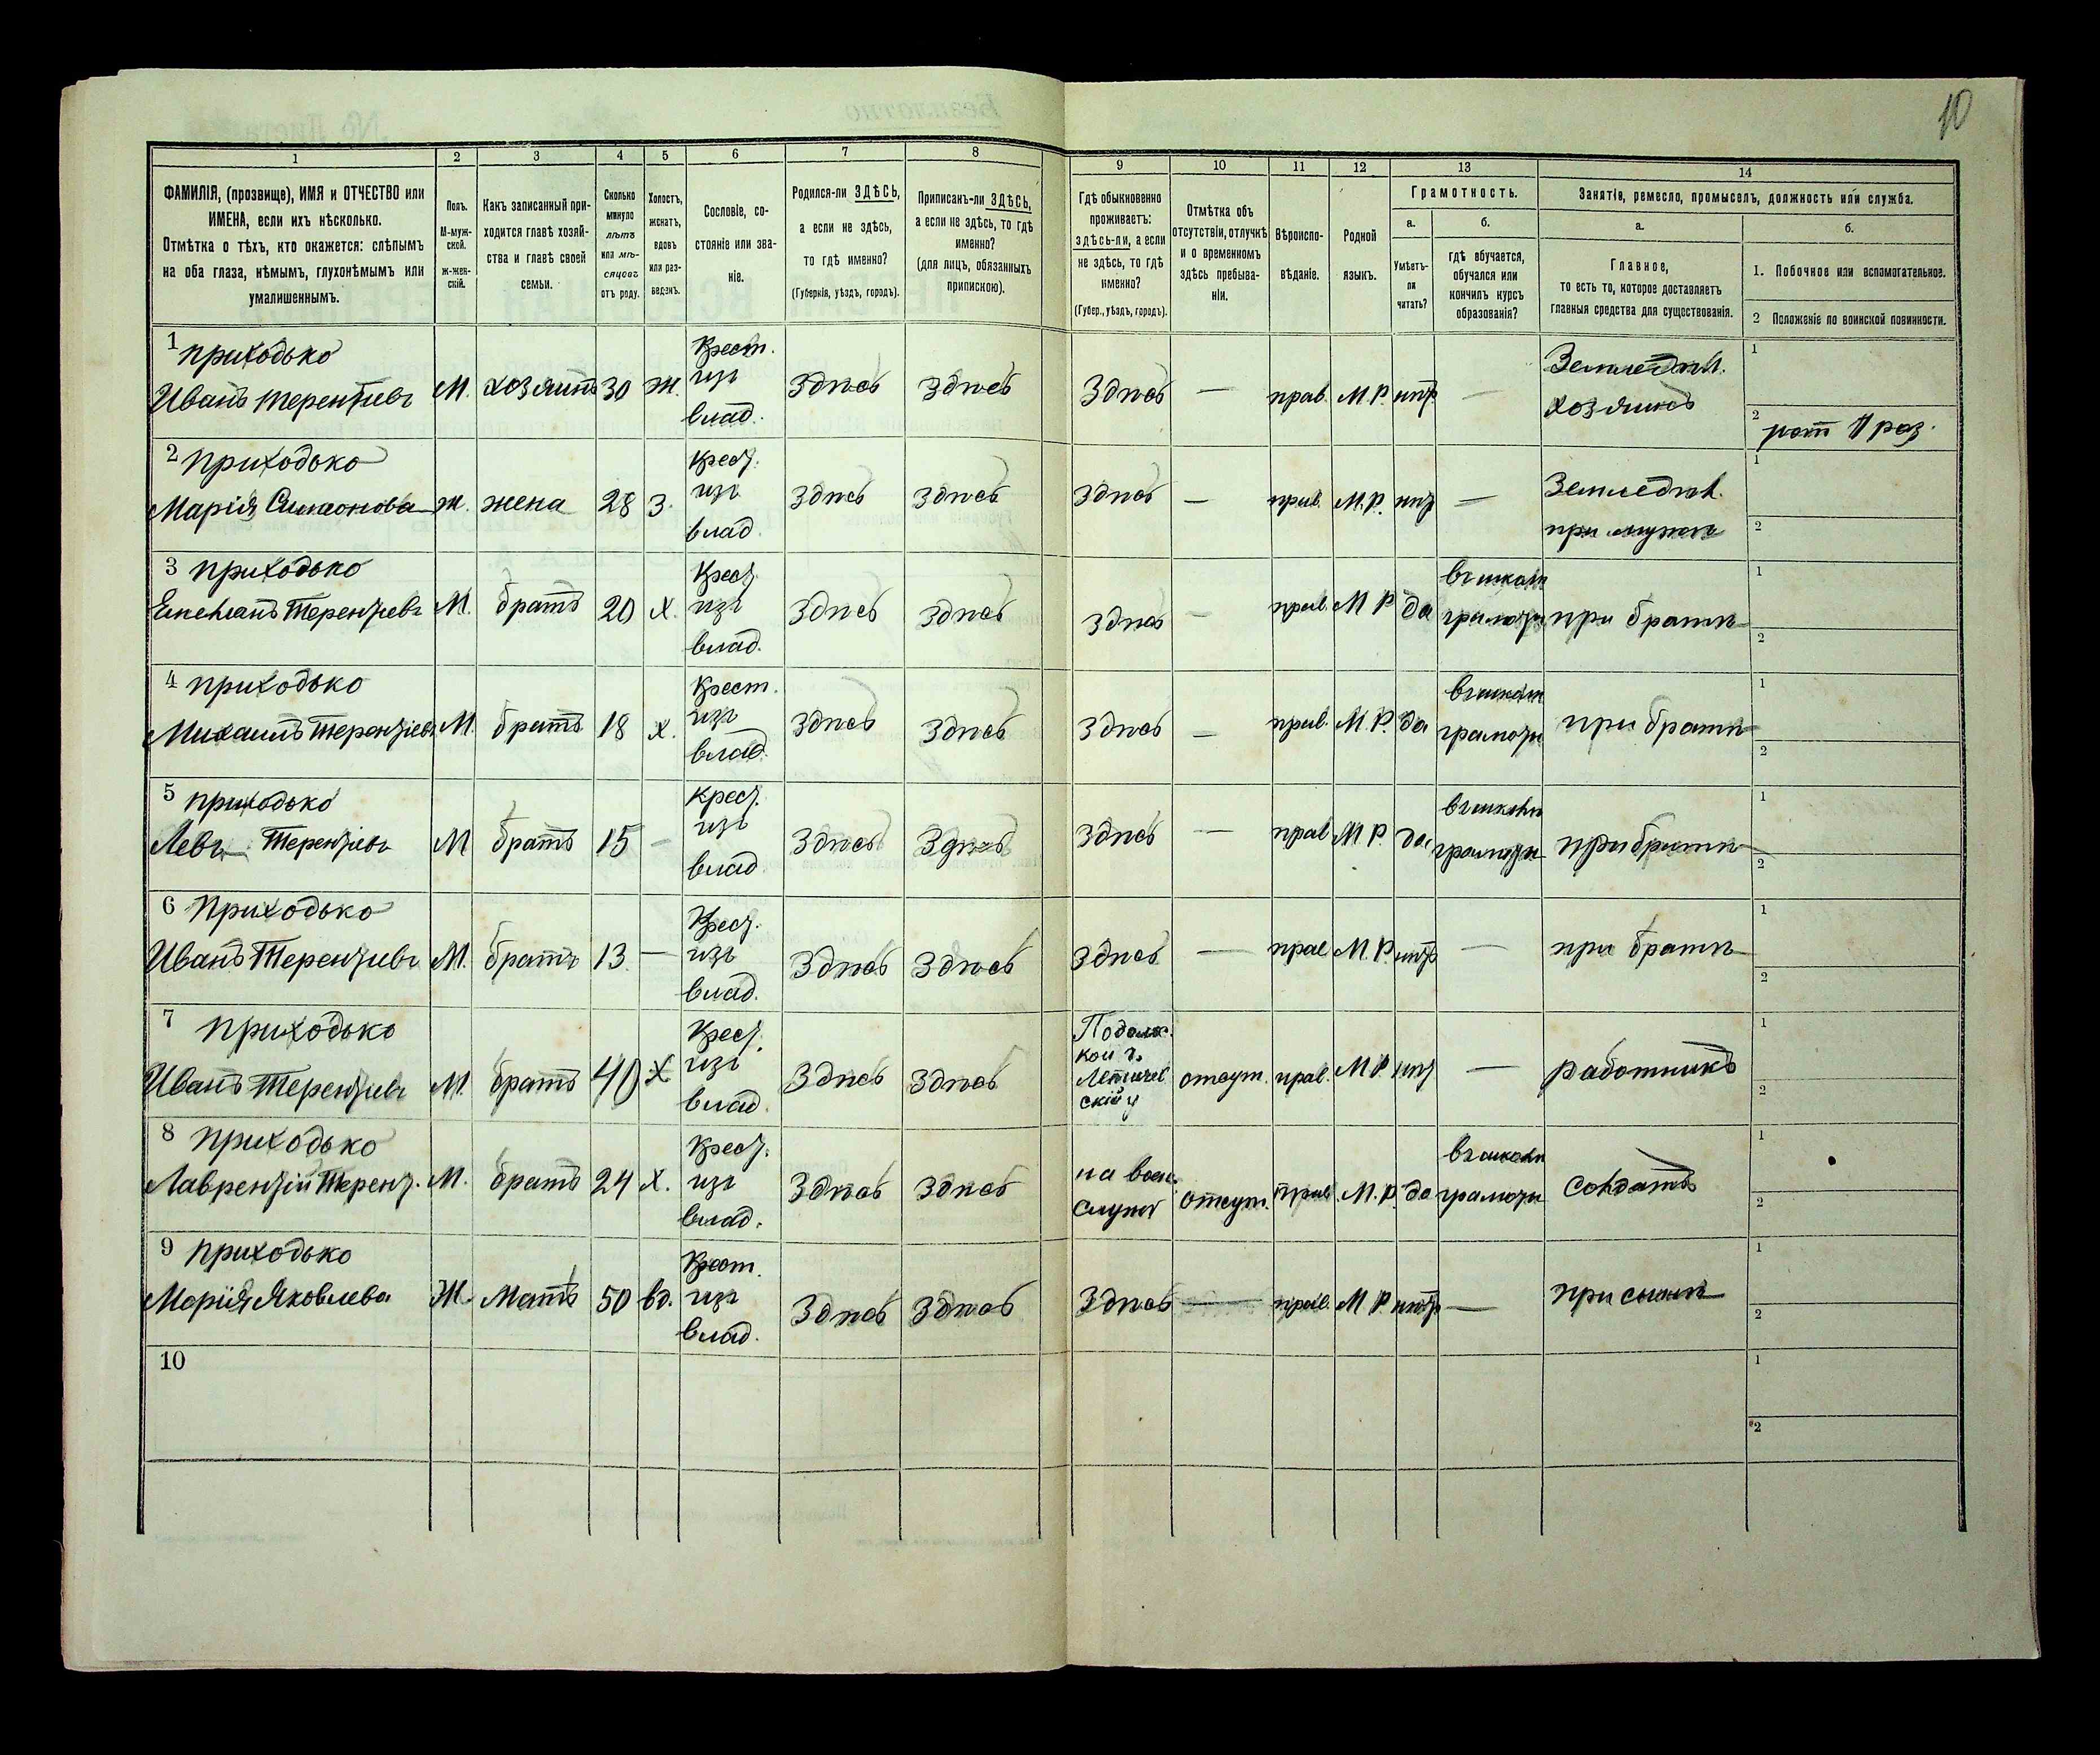 10
1 2 3 4 5 6 7 8 9 10 11 12 13 14
ФАМИЛІЯ, (прозвище), ИМЯ и ОТЧЕСТВО или ИМЕНА, если ихъ нѣсколько.
Отмѣтка о тѣхъ, кто окажется: слѣпымъ на оба глаза, нѣмымъ, глухонѣмымъ или умалишеннымъ.
Полъ. М-мужской. ж-женскій.
Какъ записанный приходится главѣ хозяйства и главѣ своей семьи.
Сколько минуло лѣтъ или мѣсяцевъ отъ роду.
Холостъ, женатъ, вдовъ или разведенъ.
Сословіе, состояніе или званіе.
Родился-ли ЗДѢСЬ, а если не здѣсь, то гдѣ именно?
(Губернія, уѣздъ, городъ).
Приписанъ-ли ЗДѢСЬ, а если не здѣсь, то гдѣ именно?
(для лицъ, обязанныхъ припискою).
Гдѣ обыкновенно проживаетъ: здѣсь-ли, а если не здѣсь, то гдѣ именно?
(Губер., уѣздъ, городъ).
Отмѣтка объ отсутствіи, отлучкѣ и о временномъ здѣсь пребываніи.
Вѣроисповѣданіе.
Родной языкъ.
Грамотность.
а. Умѣетъ-ли читать?
б. гдѣ обучается, обучался или кончилъ курсъ образованія?
Занятіе, ремесло, промыселъ, должность или служба.
а. Главное, то есть то, которое доставляетъ главныя средства для существованія.
б.
1. Побочное или вспомогательное.
2 Положеніе по воинской повинности.
1 Приходько Иванъ Терентіевъ М. хозяинъ 30 ж. Крест. изъ влад. Здѣсь Здѣсь Здѣсь — прав. М.Р. нѣт — Земледѣл. хозяинъ 1
2 рат II раз.
2 Приходько Марія Симеонова ж. жена 28 з. Крест. изъ влад. Здѣсь Здѣсь Здѣсь — прав. М.Р. нѣт — Земледѣл. при мужѣ 1
2
3 Приходько Емельянъ Терентіевъ М. братъ 20 х. Крест. изъ влад. Здѣсь Здѣсь Здѣсь — прав. М Р да въ школѣ грамоты при братѣ 1
2
4 Приходько Михаилъ Терентіевъ М. братъ 18 х. Крест. изъ влад. Здѣсь Здѣсь Здѣсь — прав. М.Р. да въ школѣ грамоты при братѣ 1
2
5 Приходько Левъ Терентіевъ М братъ 15 — Крест. изъ влад. Здѣсь Здѣсь Здѣсь — прав М Р. да въ школѣ грамоты при братѣ 1
2
6 Приходько Иванъ Терентіевъ М. братъ 13 — Крест. изъ влад. Здѣсь Здѣсь Здѣсь — прав М.Р. нѣт — при братѣ 1
2
7 Приходько Иванъ Терентіевъ М. братъ 40 х Крест. изъ влад. Здѣсь Здѣсь Подольской г. Летичевскій у отсут. прав. М Р. нѣт — работникъ 1
2
8 Приходько Лаврентій Терент. М. братъ 24 х. Крест. изъ влад. Здѣсь Здѣсь на воен. службѣ отсут. прав М.Р. да въ школѣ грамоты солдатъ 1
2
9 Приходько Марія Яковлева Ж. Мать 50 вд. Крест. изъ влад. Здѣсь Здѣсь Здѣсь — прав. М Р нѣт — при сынѣ 1
2
10 1
2